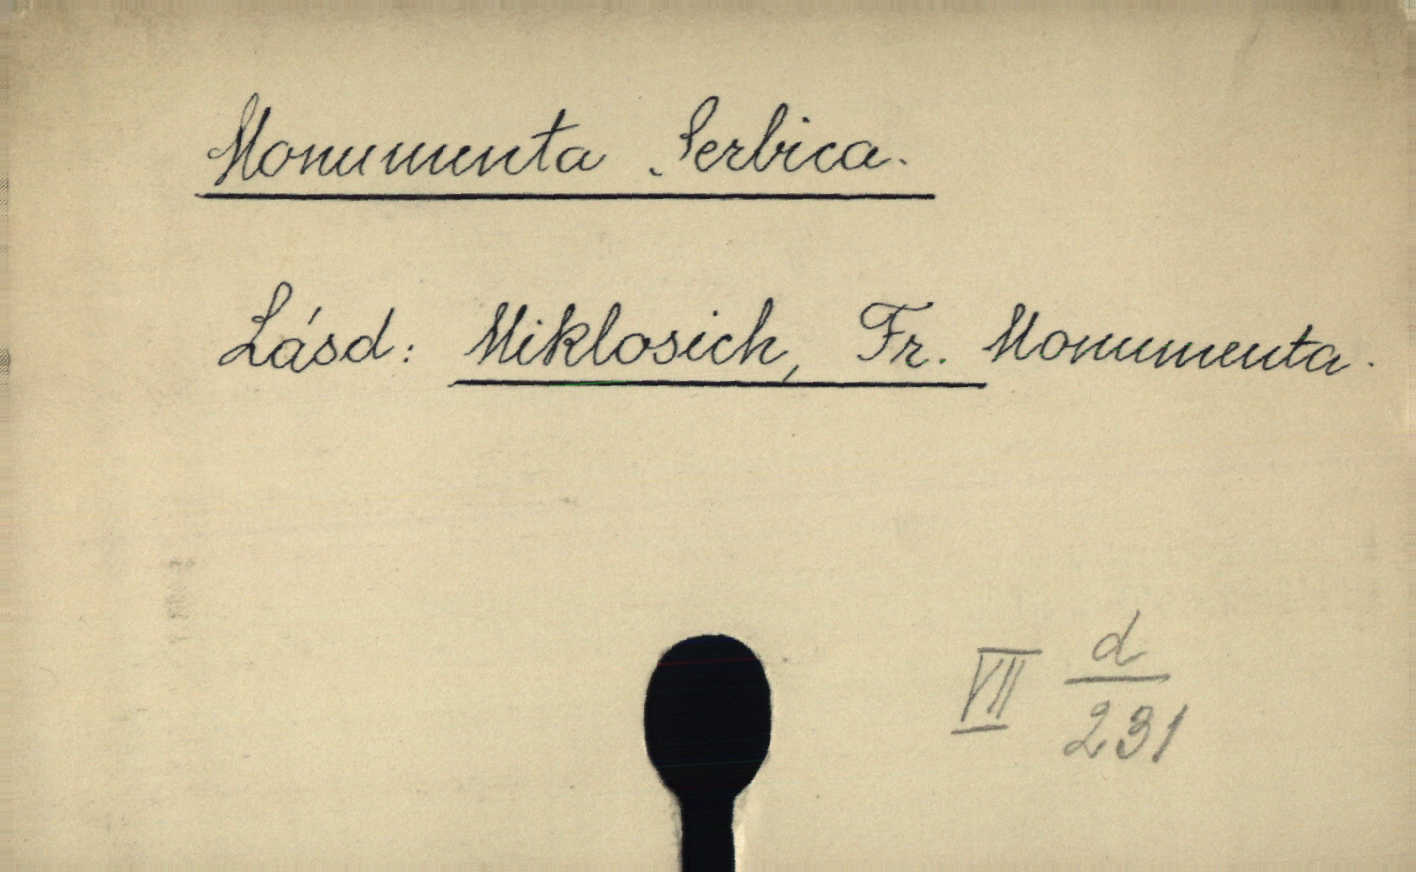 Monumenta Serbica.
Lásd: Miklosich, Fr. Monumenta.
VII d/231